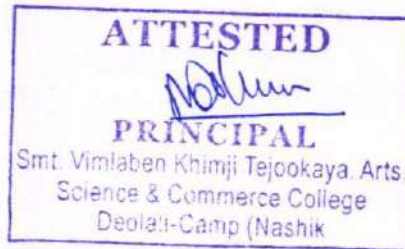 ATTESTED
PRINCIPAL
Smt. Vimlaben Khimji Tejookaya. Arts
Science & Commerce College
Deolali-Camp (Nashik